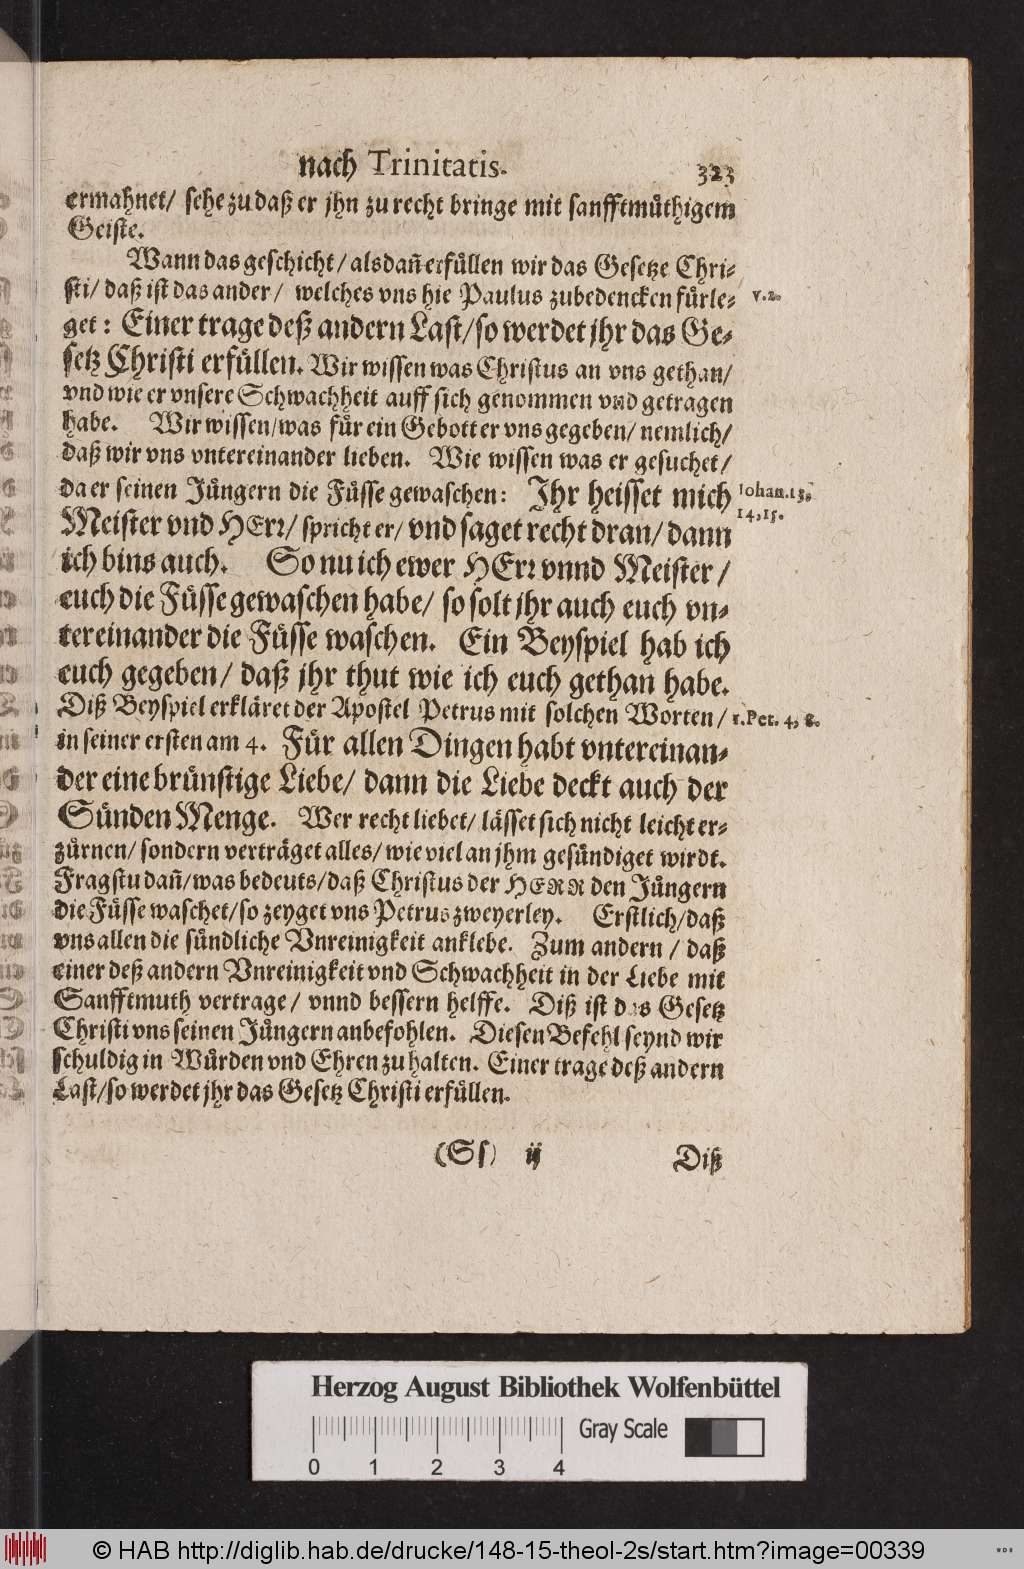 nach Trinitatis. 323
ermahnet/ sehe zu daß er jhn zu recht bringe mit sanfftmüthigem
Geiste.
Wann das geschicht/ alsdañ erfüllen wir das Gesetze Chri-
sti/ daß ist das ander/ welches vns hie Paulus zubedencken fürle- v.2.
get: Einer trage deß andern Last/ so werdet jhr das Ge-
setz Christi erfüllen. Wir wissen was Christus an vns gethan/
vnd wie er vnsere Schwachheit auff sich genommen vnd getragen
habe. Wir wissen/ was für ein Gebott er vns gegeben/ nemlich/
daß wir vns vntereinander lieben. Wie wissen was er gesuchet/
da er seinen Jüngern die Füsse gewaschen: Jhr heisset mich Iohan.13.
14,15.
Meister vnd HErr/ spricht er/ vnd saget recht dran/ dann
ich bins auch. So nu ich ewer HErr vnnd Meister/
euch die Füsse gewaschen habe/ so solt jhr auch euch vn-
tereinander die Füsse waschen. Ein Beyspiel hab ich
euch gegeben/ daß jhr thut wie ich euch gethan habe.
Diß Beyspiel erkläret der Apostel Petrus mit solchen Worten/ 1.Pet. 4, 8.
in seiner ersten am 4. Für allen Dingen habt vntereinan-
der eine brünstige Liebe/ dann die Liebe deckt auch der
Sünden Menge. Wer recht liebet/ lässet sich nicht leicht er-
zürnen/ sondern verträget alles/ wie viel an jhm gesündiget wirdt.
Fragstu dañ/ was bedeuts/ daß Christus der HERR den Jüngern
die Füsse waschet/ so zeyget vns Petrus zweyerley. Erstlich/ daß
vns allen die sündliche Vnreinigkeit anklebe. Zum andern/ daß
einer deß andern Vnreinigkeit vnd Schwachheit in der Liebe mit
Sanfftmuth vertrage/ vnnd bessern helffe. Diß ist das Gesetz
Christi vns seinen Jüngern anbefohlen. Diesen Befehl seynd wir
schuldig in Würden vnd Ehren zu halten. Einer trage deß andern
Last/ so werdet jhr das Gesetz Christi erfüllen.
(Ss) ij Diß
Herzog August Bibliothek Wolfenbüttel
Gray Scale
0 1 2 3 4
© HAB http://diglib.hab.de/drucke/148-15-theol-2s/start.htm?image=00339